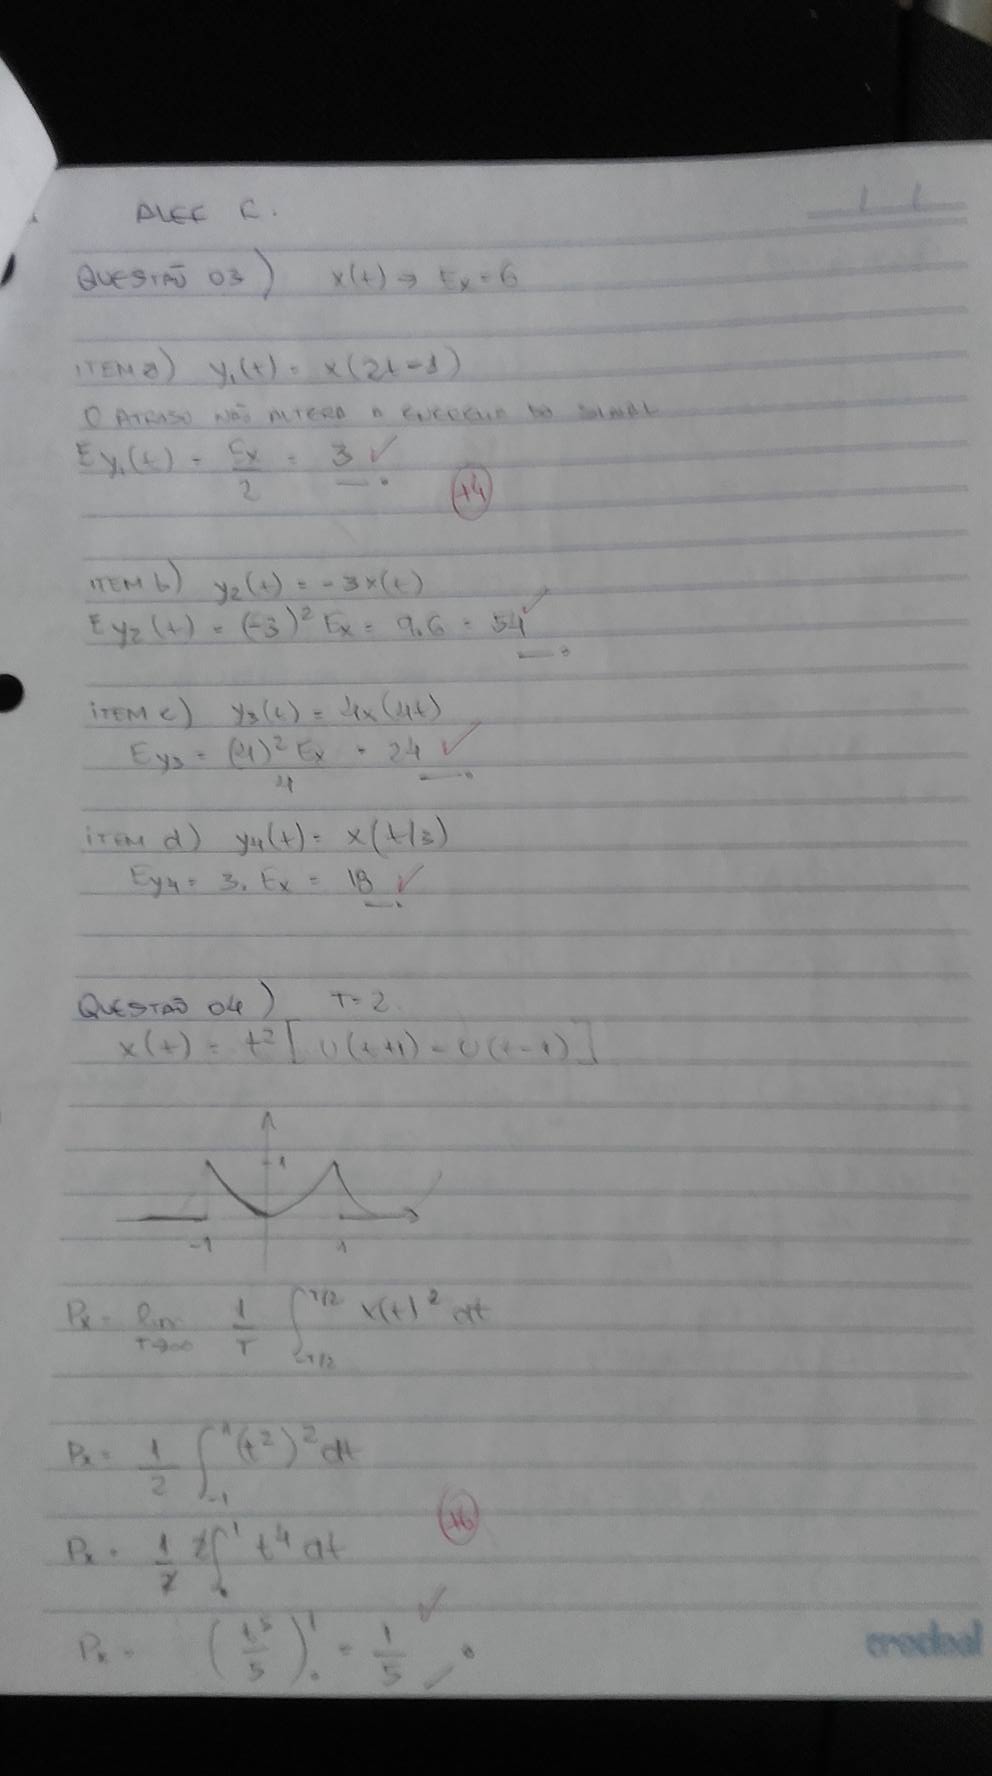 ALEF C.
QUESTÃO 03) x(t) → Ex = 6
ITEM a) y₁(t) = x(2t-1)
O ATRASO NÃO ALTERA A ENERGIA DO SINAL
Ey₁(t) = Ex/2 = 3 ✓
+4
ITEM b) y₂(t) = -3x(t)
Ey₂(t) = (-3)² Ex = 9.6 = 54 ✓
ITEM c) y₃(t) = 4x(4t)
Ey₃ = (4)² Ex/4 = 24 ✓
ITEM d) y₄(t) = x(t/3)
Ey₄ = 3. Ex = 18 ✓
QUESTÃO 04) T=2
x(t) = t² [U(t+1) - U(t-1)]
1
-1 1
Px = lim T→∞ 1/T ∫_{-T/2}^{T/2} x(t)² dt
Px = 1/2 ∫_{-1}^{1} (t²)² dt
+6
Px = 1/2 2∫_{0}^{1} t⁴ dt
Px = (t⁵/5)₀¹ = 1/5 ✓
credeal